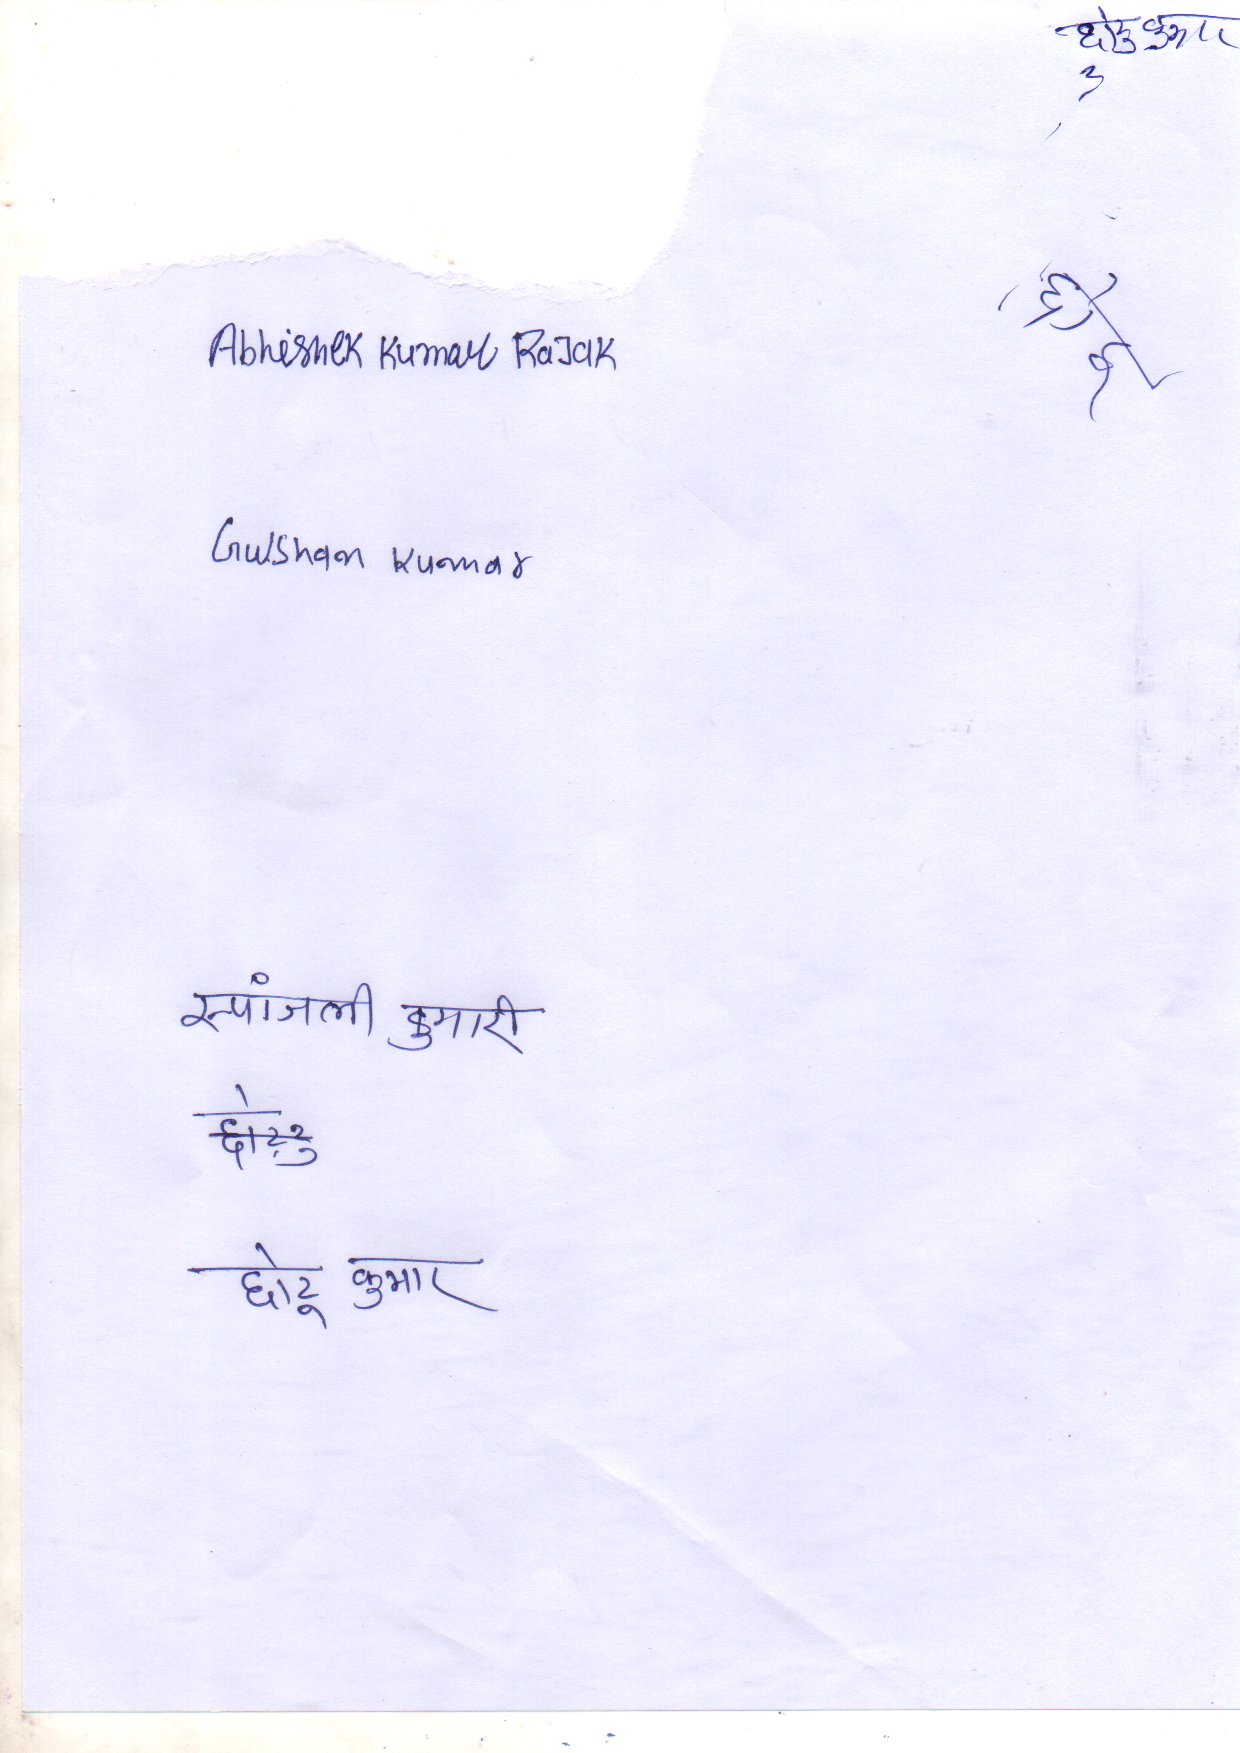 छोटु कुमार
Abhishek Kumar Rajak
Gulshan Kumar
रूपांजली कुमारी
छोटु
छोटू कुमार